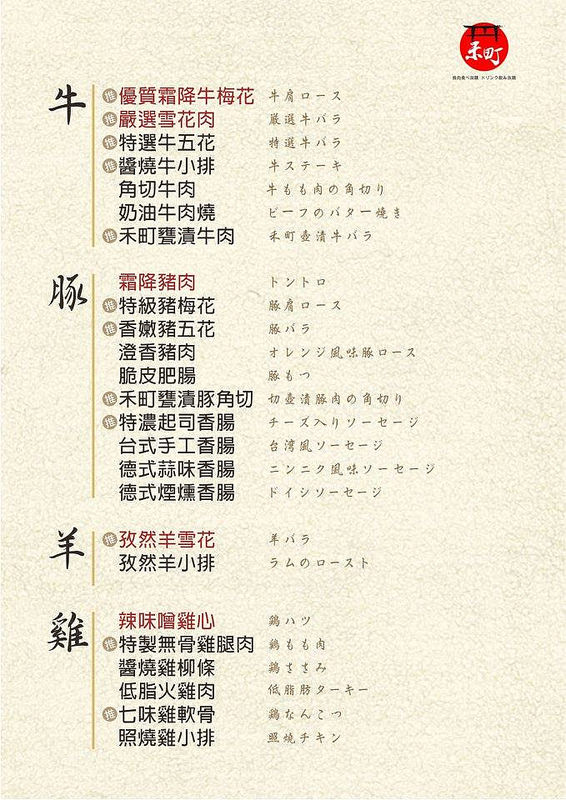 禾町
焼肉食べ放題 ドリンク飲み放題
牛
推 優質霜降牛梅花 牛肩ロース
推 嚴選雪花肉 厳選牛バラ
推 特選牛五花 特選牛バラ
推 醬燒牛小排 牛ステーキ
角切牛肉 牛もも肉の角切り
奶油牛肉燒 ビーフのバター焼き
推 禾町甕漬牛肉 禾町壺漬牛バラ
豚
霜降豬肉 トントロ
推 特級豬梅花 豚肩ロース
推 香嫩豬五花 豚バラ
澄香豬肉 オレンジ風味豚ロース
脆皮肥腸 豚もつ
推 禾町甕漬豚角切 切壺漬豚肉の角切り
推 特濃起司香腸 チーズ入りソーセージ
台式手工香腸 台湾風ソーセージ
德式蒜味香腸 ニンニク風味ソーセージ
德式煙燻香腸 ドイシソーセージ
羊
推 孜然羊雪花 羊バラ
孜然羊小排 ラムのロースト
雞
辣味噌雞心 鶏ハツ
推 特製無骨雞腿肉 鶏もも肉
醬燒雞柳條 鶏ささみ
低脂火雞肉 低脂肪ターキー
推 七味雞軟骨 鶏なんこつ
照燒雞小排 照焼チキン